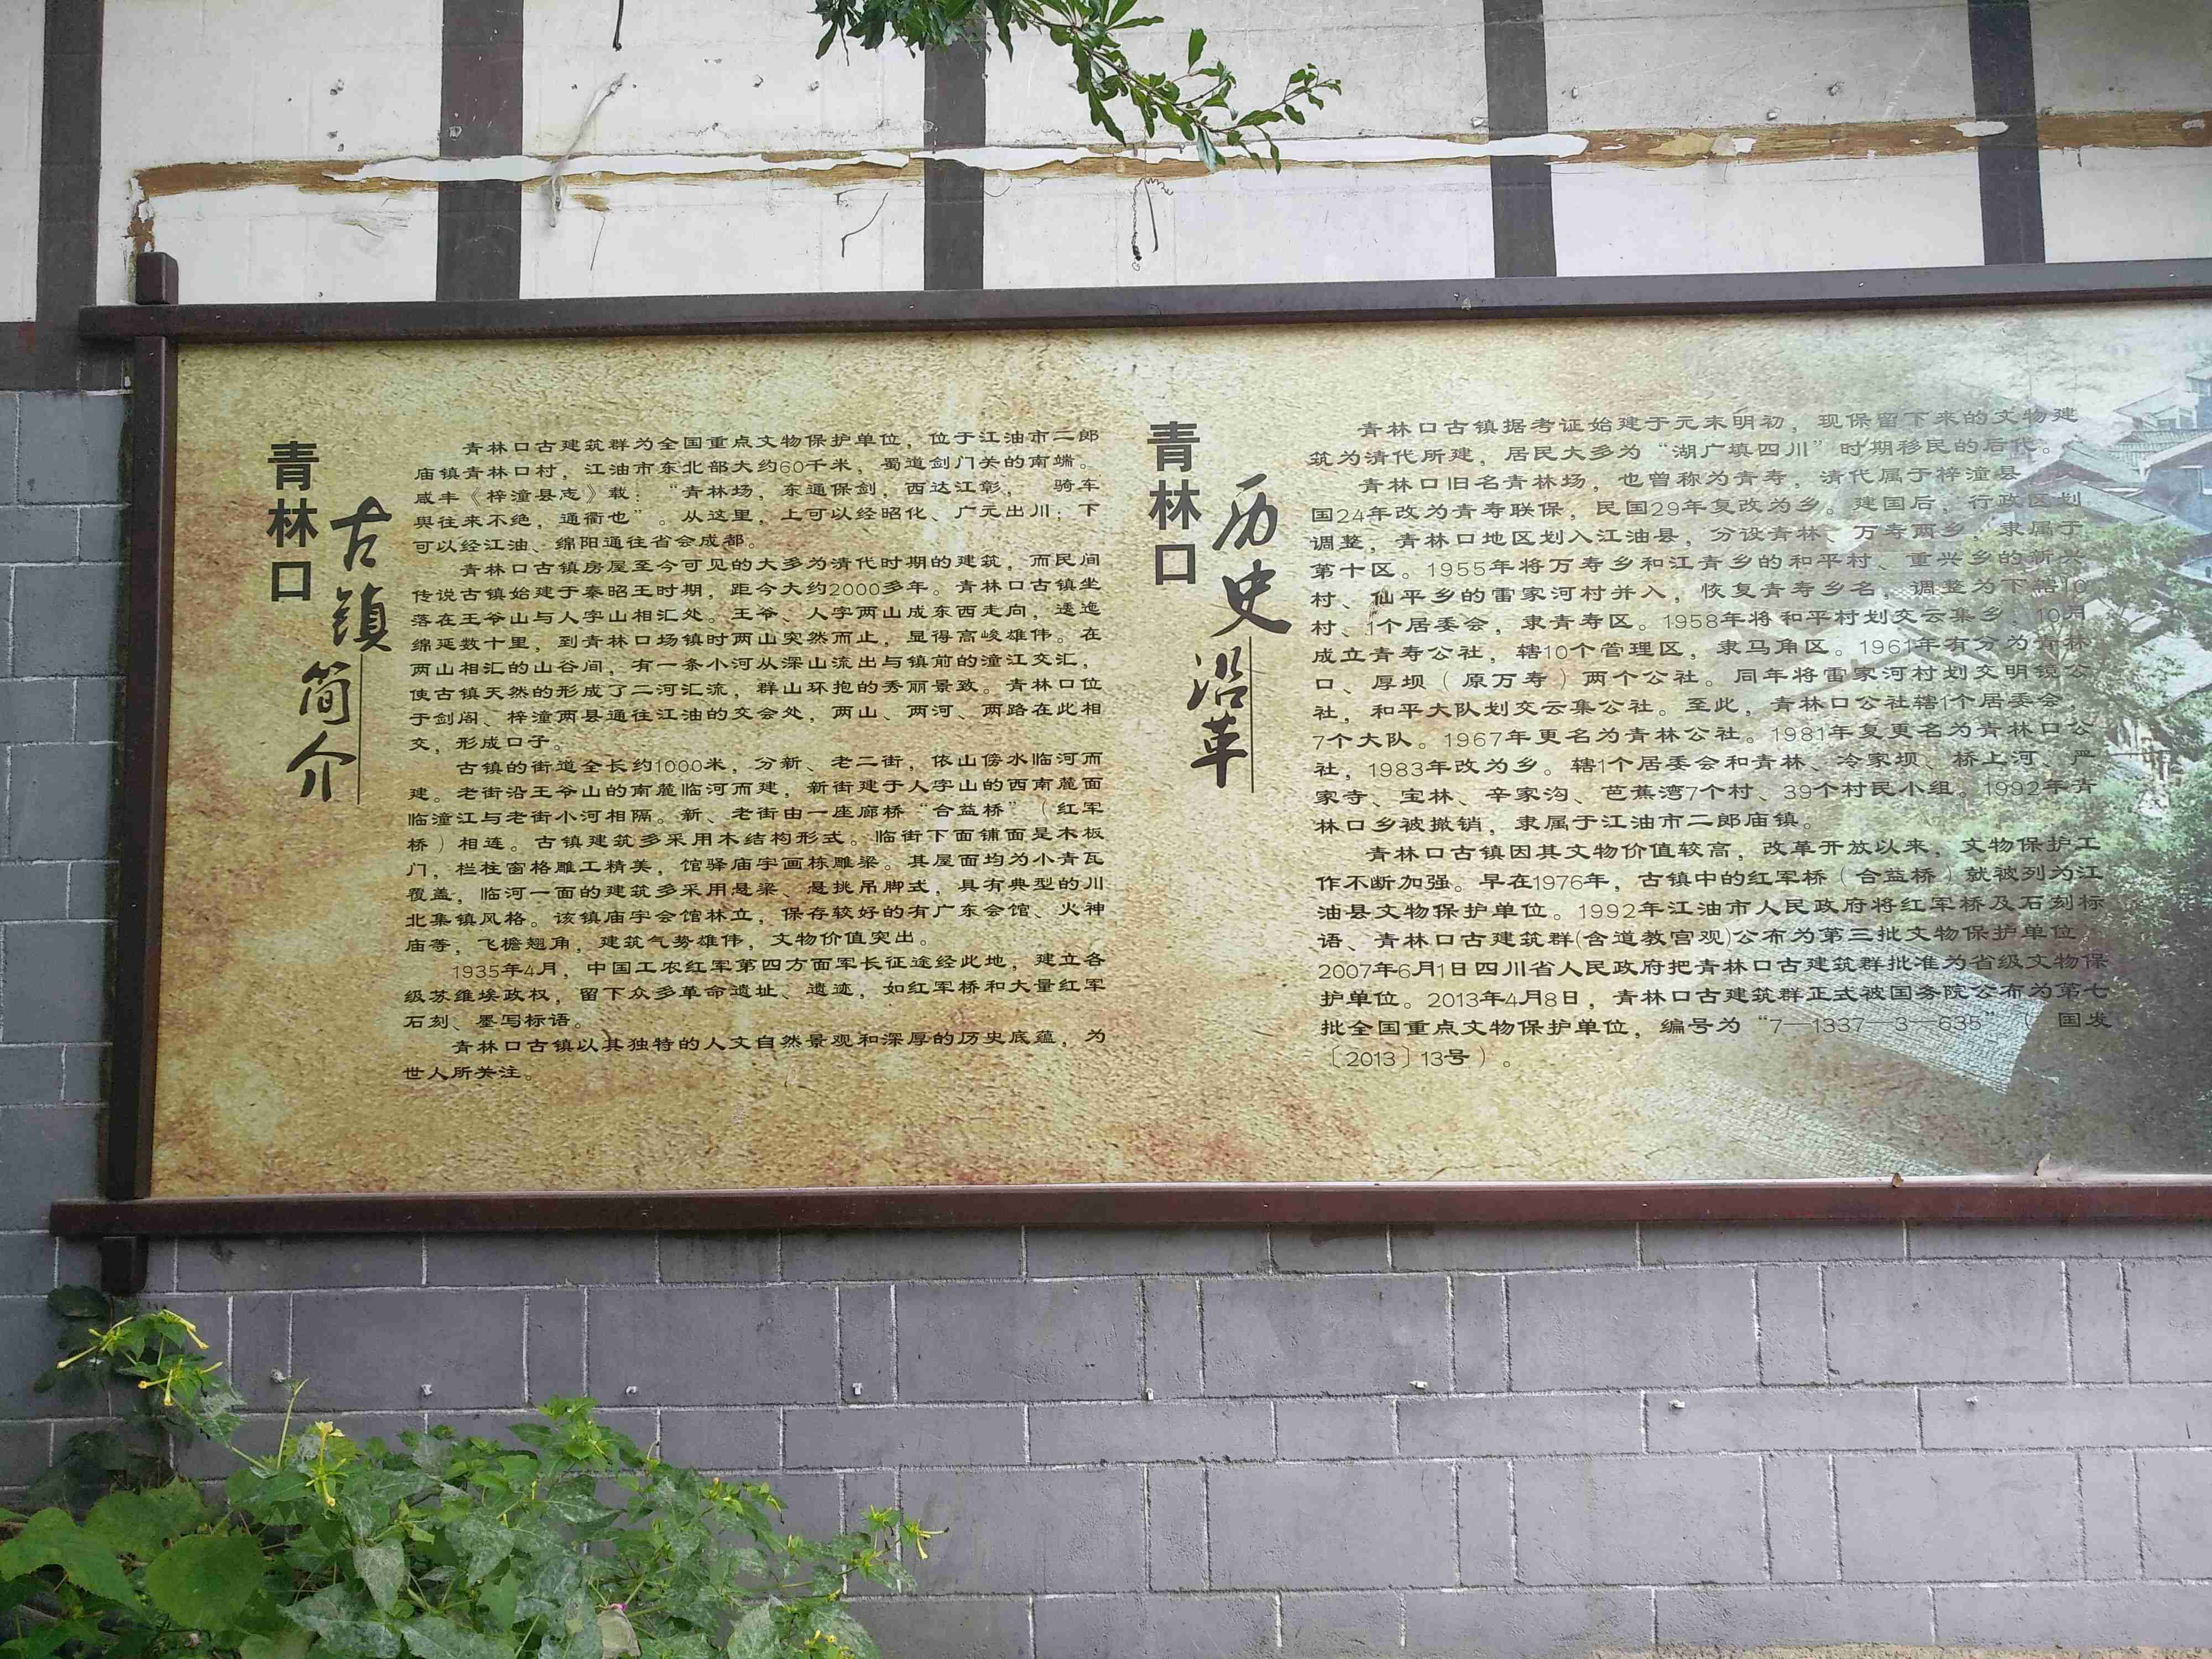 青林口
古镇简介
青林口古建筑群为全国重点文物保护单位，位于江油市二郎
庙镇青林口村，江油市东北部大约60千米，蜀道剑门关的南端。
咸丰《梓潼县志》载：“青林场，东通保剑，西达江彰， 骑车
舆往来不绝，通衢也”。从这里，上可以经昭化、广元出川；下
可以经江油、绵阳通往省会成都。
青林口古镇房屋至今可见的大多为清代时期的建筑，而民间
传说古镇始建于秦昭王时期，距今大约2000多年。青林口古镇坐
落在王爷山与人字山相汇处。王爷、人字两山成东西走向，逶迤
绵延数十里，到青林口场镇时两山突然而止，显得高峻雄伟。在
两山相汇的山谷间，有一条小河从深山流出与镇前的潼江交汇，
使古镇天然的形成了二河汇流，群山环抱的秀丽景致。青林口位
于剑阁、梓潼两县通往江油的交会处，两山、两河、两路在此相
交，形成口子。
古镇的街道全长约1000米，分新、老二街，依山傍水临河而
建。老街沿王爷山的南麓临河而建，新街建于人字山的西南麓面
临潼江与老街小河相隔。新、老街由一座廊桥“合益桥”（红军
桥）相连。古镇建筑多采用木结构形式。临街下面铺面是木板
门，栏柱窗格雕工精美，馆驿庙宇画栋雕梁。其屋面均为小青瓦
覆盖，临河一面的建筑多采用悬梁、悬挑吊脚式，具有典型的川
北集镇风格。该镇庙宇会馆林立，保存较好的有广东会馆、火神
庙等，飞檐翘角，建筑气势雄伟，文物价值突出。
1935年4月，中国工农红军第四方面军长征途经此地，建立各
级苏维埃政权，留下众多革命遗址、遗迹，如红军桥和大量红军
石刻、墨写标语。
青林口古镇以其独特的人文自然景观和深厚的历史底蕴，为
世人所关注。
青林口
历史沿革
青林口古镇据考证始建于元末明初，现保留下来的文物建
筑为清代所建，居民大多为“湖广填四川”时期移民的后代。
青林口旧名青林场，也曾称为青寿，清代属于梓潼县，
国24年改为青寿联保，民国29年复改为乡。建国后，行政区划
调整，青林口地区划入江油县，分设青林、万寿两乡，隶属于
第十区。1955年将万寿乡和江青乡的和平村、重兴乡的新兴
村、仙平乡的雷家河村并入，恢复青寿乡名，调整为下辖10
村、1个居委会，隶青寿区。1958年将和平村划交云集乡，10月
成立青寿公社，辖10个管理区，隶马角区。1961年有分为青林
口、厚坝（原万寿）两个公社。同年将雷家河村划交明镜公
社，和平大队划交云集公社。至此，青林口公社辖1个居委会，
7个大队。1967年更名为青林公社。1981年复更名为青林口公
社，1983年改为乡。辖1个居委会和青林、冷家坝、桥上河、严
家寺、宝林、辛家沟、芭蕉湾7个村、39个村民小组。1992年青
林口乡被撤销，隶属于江油市二郎庙镇。
青林口古镇因其文物价值较高，改革开放以来，文物保护工
作不断加强。早在1976年，古镇中的红军桥（合益桥）就被列为江
油县文物保护单位。1992年江油市人民政府将红军桥及石刻标
语、青林口古建筑群(含道教宫观)公布为第三批文物保护单位。
2007年6月1日四川省人民政府把青林口古建筑群批准为省级文物保
护单位。2013年4月8日，青林口古建筑群正式被国务院公布为第七
批全国重点文物保护单位，编号为“7—1337—3—635”（ 国发
〔2013〕13号）。